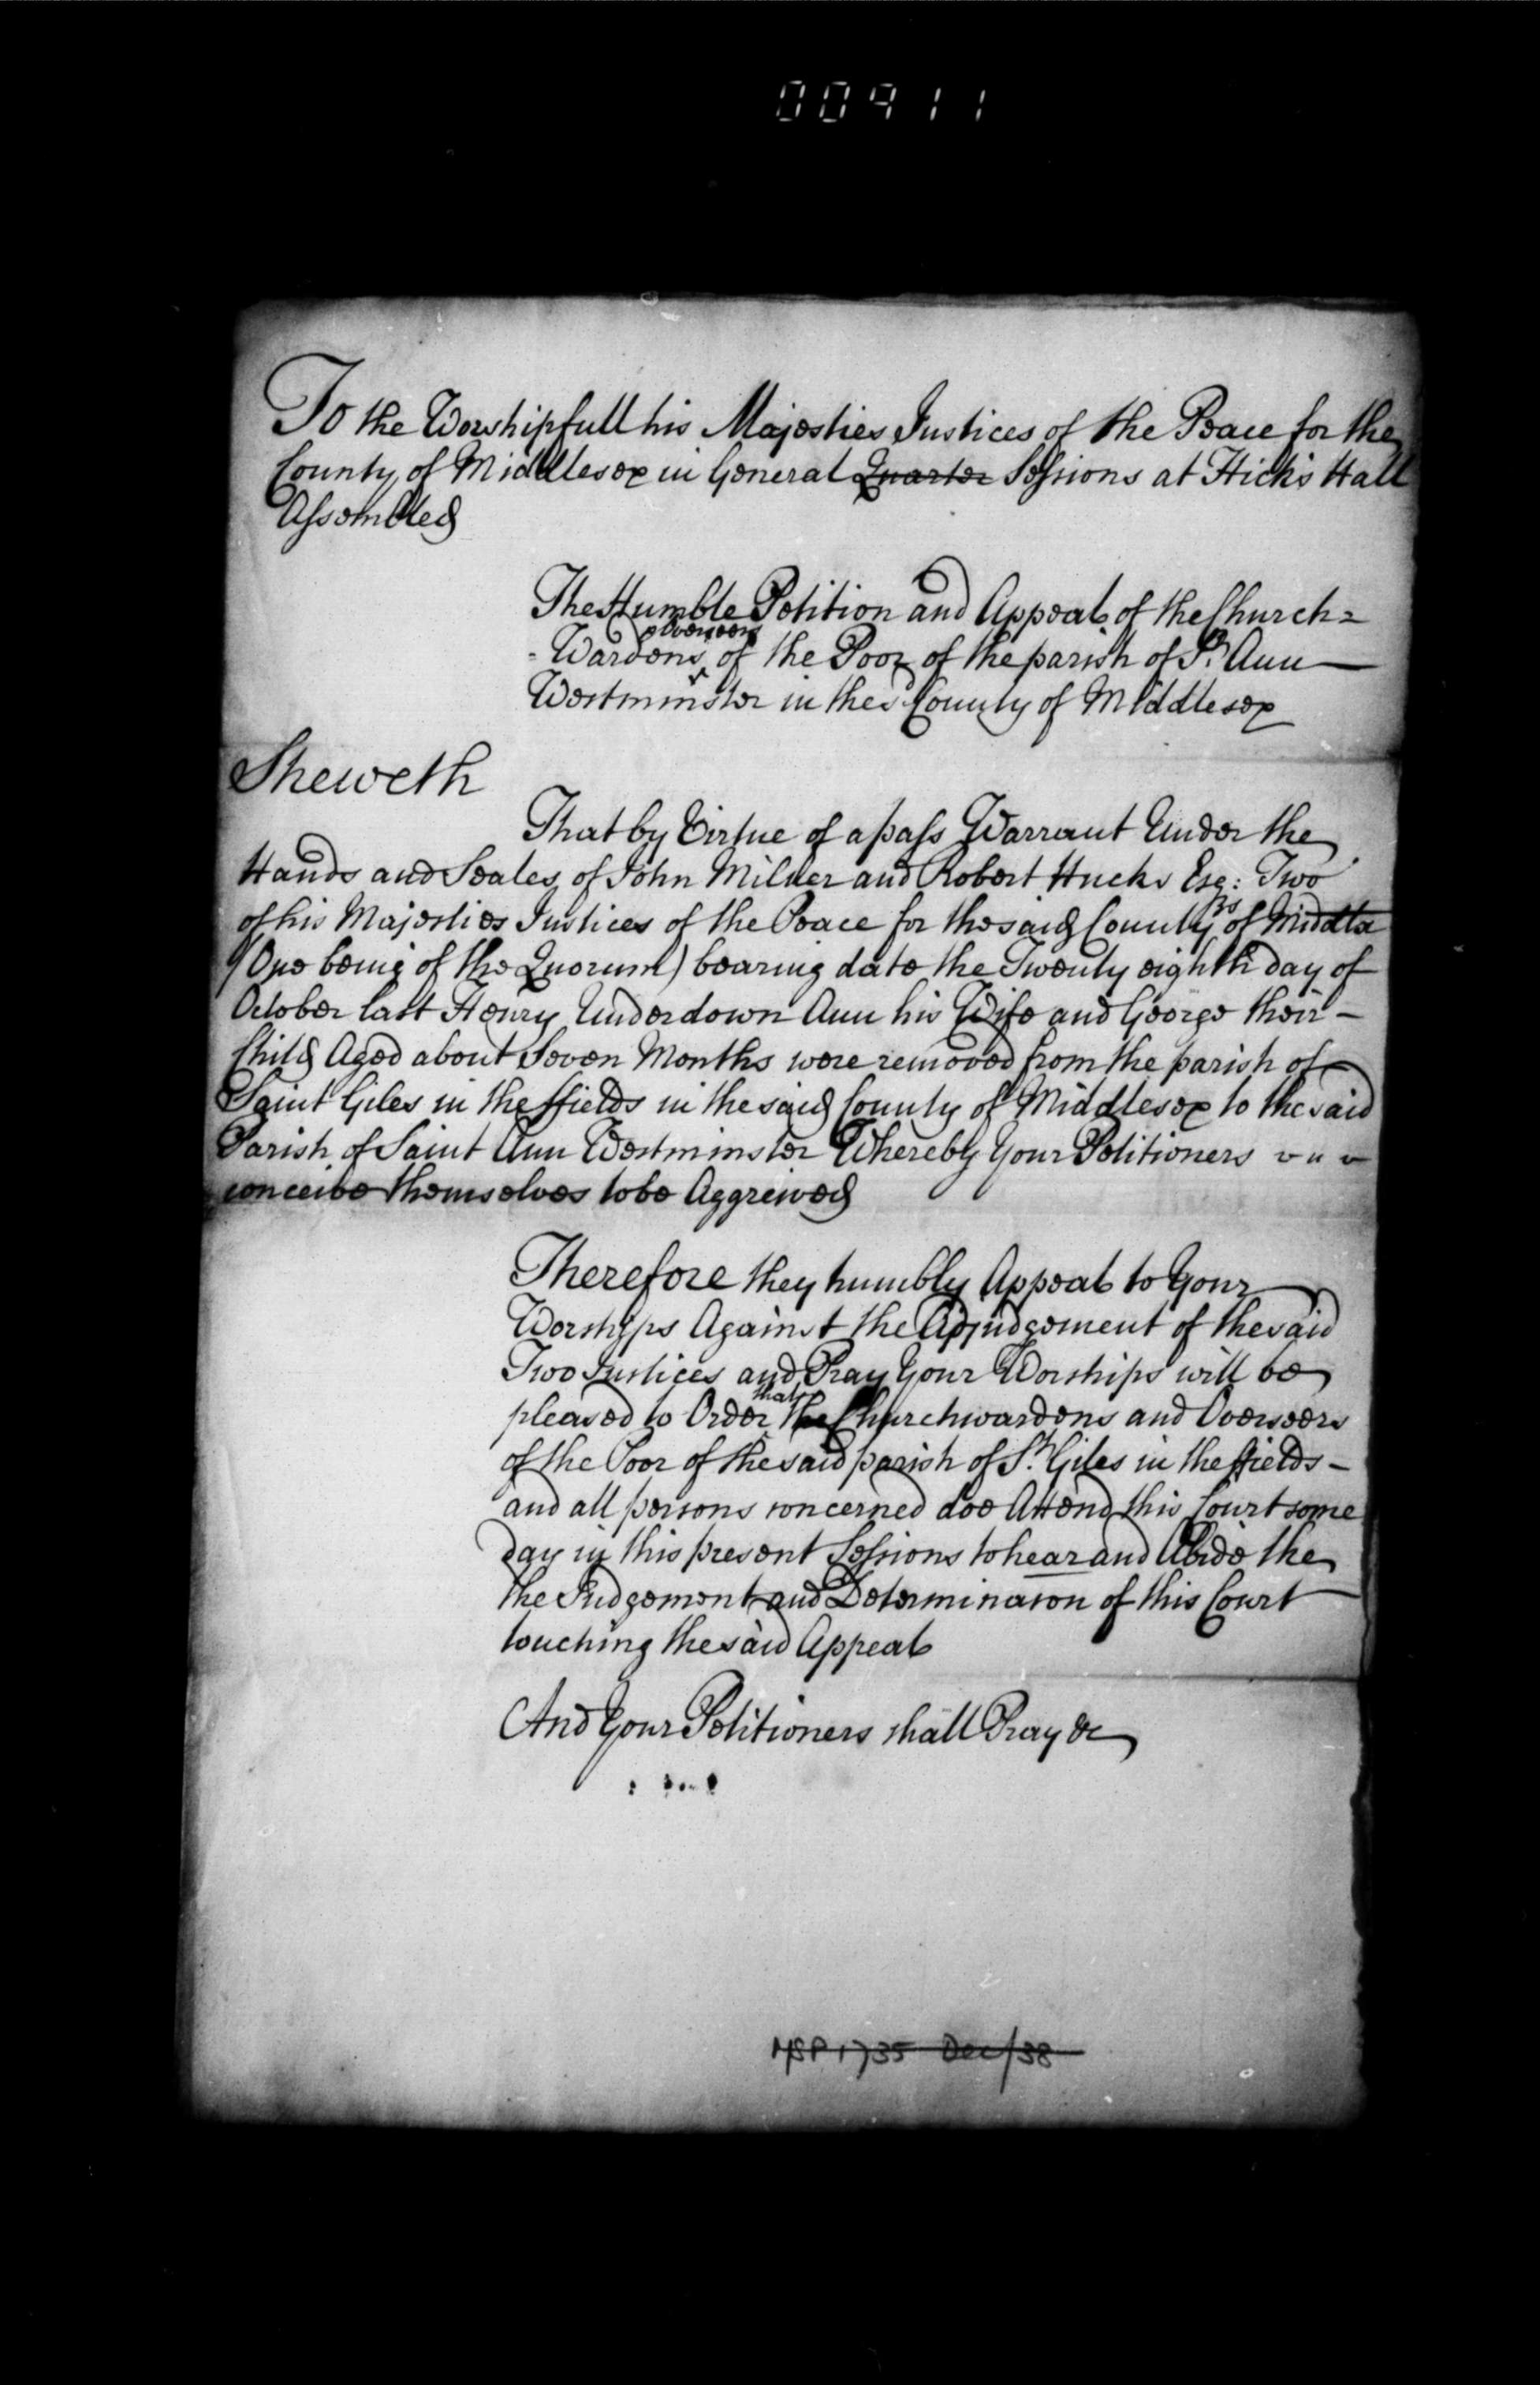 00911
To the Worshipfull his Majesties Justices of the Peace for the
County of Middlesex in General Quarter Sessions at Hick's Hall
Assembled
The Humble Petition and Appeal of the Church=
& Overseers
=Wardens of the Poor of the parish of St. Ann
Westminster in the County of Middlesex
Sheweth
That by Virtue of a pass Warrant Under the
Hands and Seales of John Milner and Robert Hucks Esqrs: Two
of his Majesties Justices of the Peace for the said County of Middlx
(One being of the Quorum) bearing date the Twenty eighth day of
October last Henry Underdown Ann his Wife and George their -
Child Aged about Seven Months were removed from the parish of
Saint Giles in the ffields in the said County of Middlesex to the said
Parish of Saint Ann Westminster Whereby Your Petitioners
conceive themselves to be Aggreived
Therefore they humbly Appeal to Your
Worships Against the Adjudgement of the said
Two Justices and Pray Your Worships will be
that
pleased to Order the Churchwardens and Overseers
of the Poor of the said parish of St. Giles in the ffields -
and all persons concerned doe Attend this Court some
day in this present Sessions to hear and Abide the
the Judgement and Determinacon of this Court
touching the said Appeal
And Your Petitioners shall Pray &c
MSP 1735 Dec/38